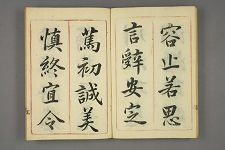 容止若思
言辭安定
篤初誠美
慎終宜令